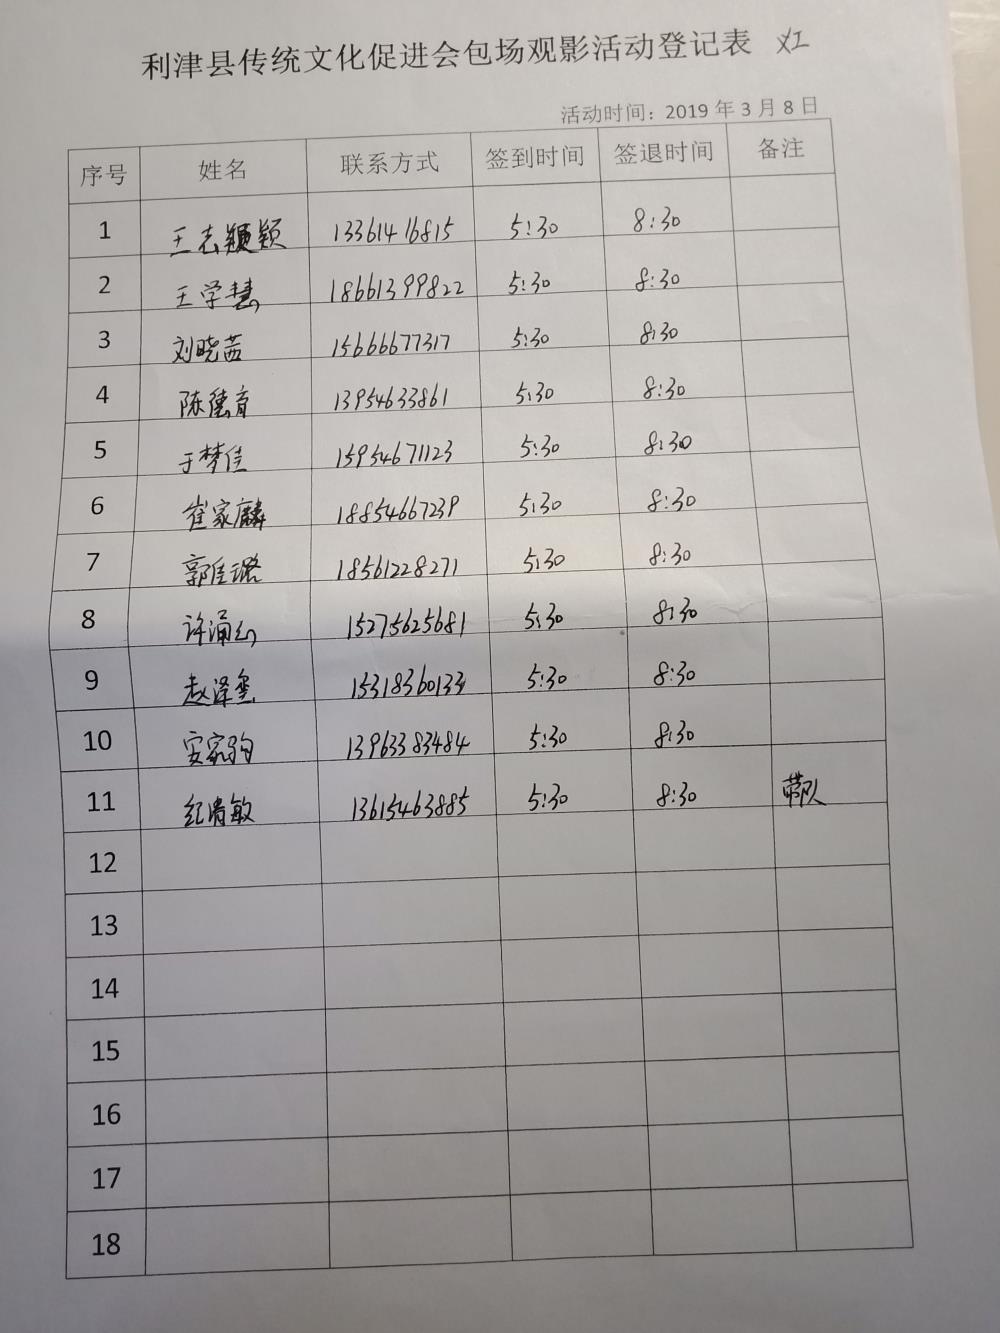 利津县传统文化促进会包场观影活动登记表 义工
活动时间：2019 年 3 月 8 日
序号 姓名 联系方式 签到时间 签退时间 备注
1 王志颖 13361416815 5:30 8:30
2 王学慧 18661399822 5:30 8:30
3 刘晓茜 15666677317 5:30 8:30
4 陈德育 13954633861 5:30 8:30
5 于梦佳 15954671123 5:30 8:30
6 崔家麟 18854667239 5:30 8:30
7 郭佳璐 18561228271 5:30 8:30
8 许涌 15275625681 5:30 8:30
9 赵泽 15318360133 5:30 8:30
10 安家驹 13963383484 5:30 8:30
11 纪清敏 13615463885 5:30 8:30 带队
12
13
14
15
16
17
18